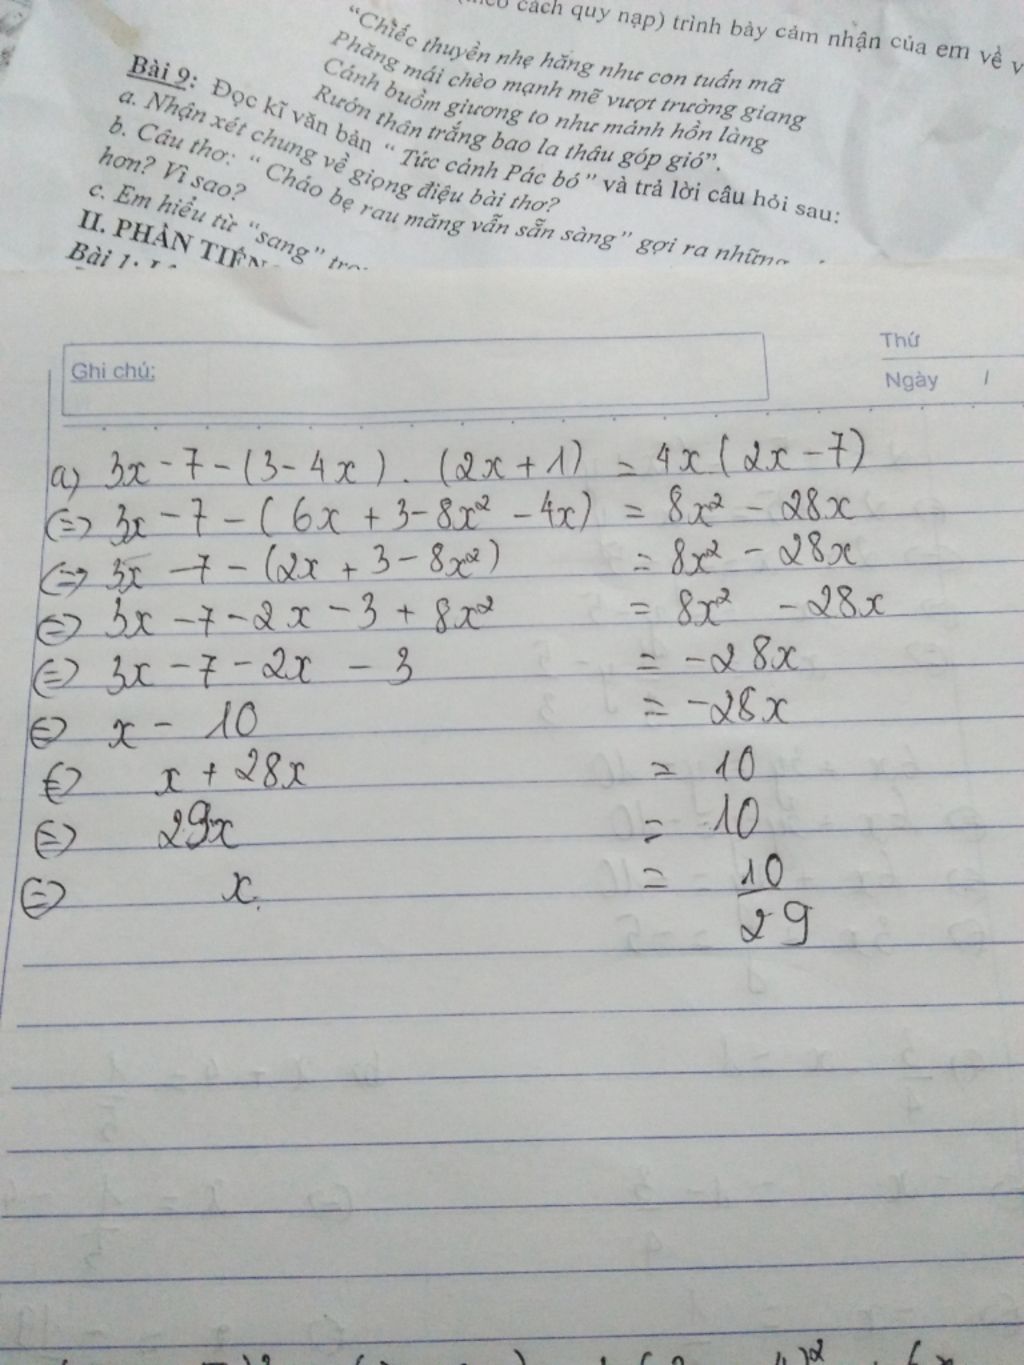 cách quy nạp) trình bày cảm nhận của em về
“Chiếc thuyền nhẹ hăng như con tuấn mã
Phăng mái chèo mạnh mẽ vượt trường giang
Cánh buồm giương to như mảnh hồn làng
Rướn thân trắng bao la thâu góp gió”.
Bài 9: Đọc kĩ văn bản “ Tức cảnh Pác bó” và trả lời câu hỏi sau:
a. Nhận xét chung về giọng điệu bài thơ?
b. Câu thơ: “ Cháo bẹ rau măng vẫn sẵn sàng” gợi ra những
hơn? Vì sao?
c. Em hiểu từ “sang”
II. PHẦN
Bài 1:
Ghi chú:
Thứ
Ngày /
a) 3x - 7 - (3 - 4x) . (2x + 1) = 4x (2x - 7)
(=) 3x - 7 - (6x + 3 - 8x² - 4x) = 8x² - 28x
(=) 3x - 7 - (2x + 3 - 8x²) = 8x² - 28x
(=) 3x - 7 - 2x - 3 + 8x² = 8x² - 28x
(=) 3x - 7 - 2x - 3 = -28x
(=) x - 10 = -28x
(=) x + 28x = 10
(=) 29x = 10
(=) x = 10/29